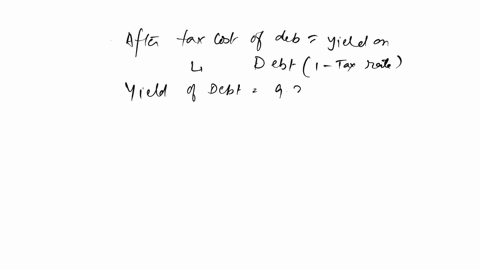 After tax cost of deb = yield on
↳ Debt (1 - Tax rate)
Yield of Debt = 9 2